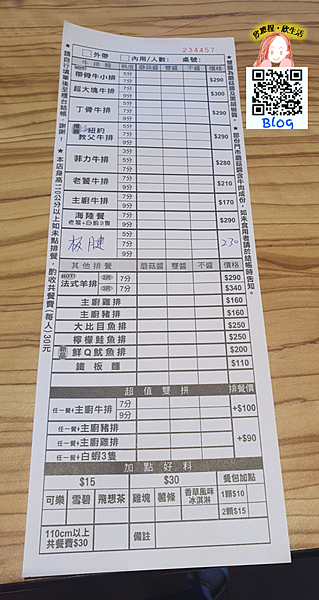 客旅程‧欣生活
Blog
234457
□外帶 □內用/人數: 桌號:
牛排類 熟度 蘑菇醬 雙醬 不醬 價格
帶骨牛小排 5分 7分 9分 $290
超大塊牛排 5分 7分 9分 $300
丁骨牛排 5分 7分 9分 $290
推薦 紐約教父牛排 5分 7分 9分 $290
菲力牛排 5分 7分 9分 $280
老饕牛排 5分 7分 9分 $210
主廚牛排 7分 9分 $170
海陸餐 老饕+白蝦3隻 5分 7分 9分 $290
板腱 230
其他排餐 蘑菇醬 雙醬 不醬 價格
HOT 法式羊排 7分 $290
7分 $340
主廚雞排 $160
主廚豬排 $160
大比目魚排 $250
檸檬鮭魚排 $250
鮮Q魷魚排 $200
鐵板麵 $110
超值雙拼 排餐價
任一餐+主廚牛排 7分 9分 +$100
任一餐+主廚豬排
任一餐+主廚雞排 +$90
任一餐+白蝦3隻
加點好料
$15 $30 餐包加點
可樂 雪碧 飛想茶 雞塊 薯條 香草風味冰淇淋 1顆$10
2顆$15
110cm以上
共餐費$30 備註
★請自行填單後至櫃台結帳,謝謝! ★本店身高110公分以上如未點排餐,酌收共餐費(每人)30元
★雙醬為蘑菇醬及黑胡椒醬。 ★部份門市蘑菇醬含牛肉成份,如未食用者請於結帳時告知。